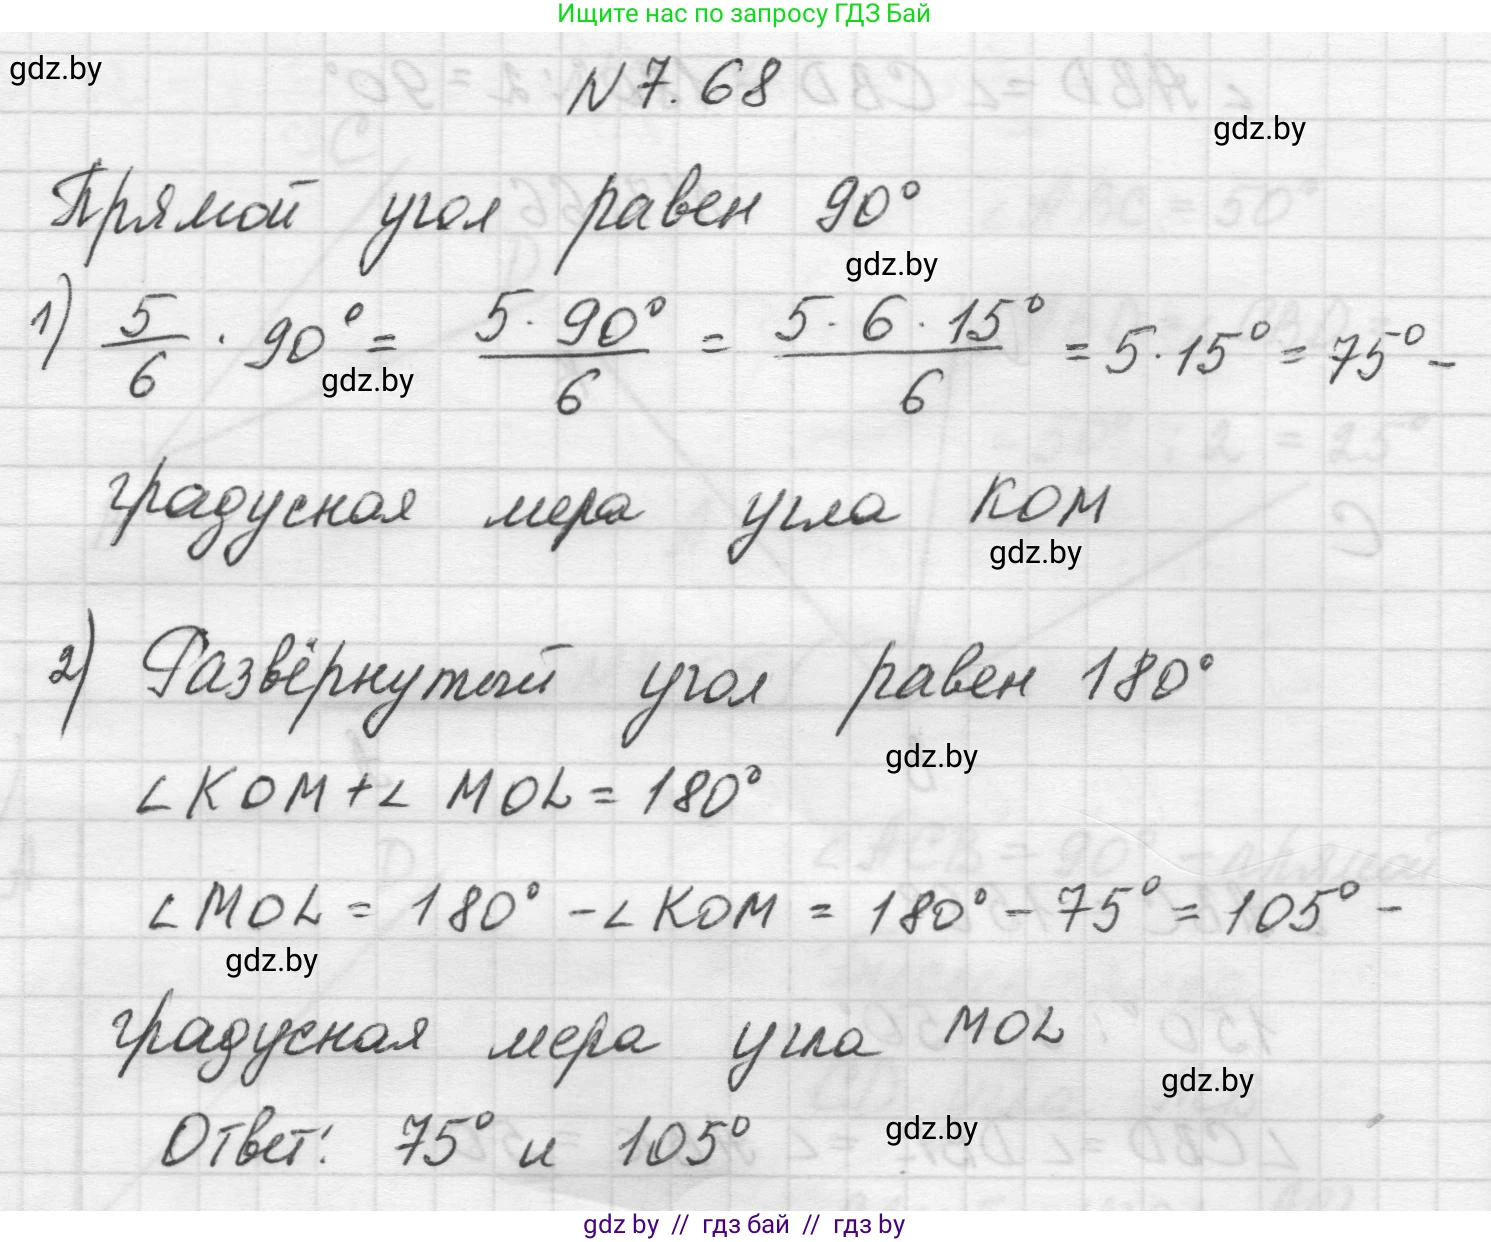 Ищите нас по запросу ГДЗ Бай
gdz.by
N 7.68
gdz.by
Прямой угол равен 90°
gdz.by
1) 5/6 · 90° = 5 · 90°/6 = 5 · 6 · 15°/6 = 5 · 15° = 75° –
gdz.by
градусная мера угла КОМ
gdz.by
2) Развёрнутый угол равен 180°
gdz.by
∠KOM + ∠MOL = 180°
∠MOL = 180° – ∠KOM = 180° – 75° = 105° –
gdz.by
градусная мера угла MOL
gdz.by
Ответ: 75° и 105°
gdz.by
gdz by // гдз бай // гдз by